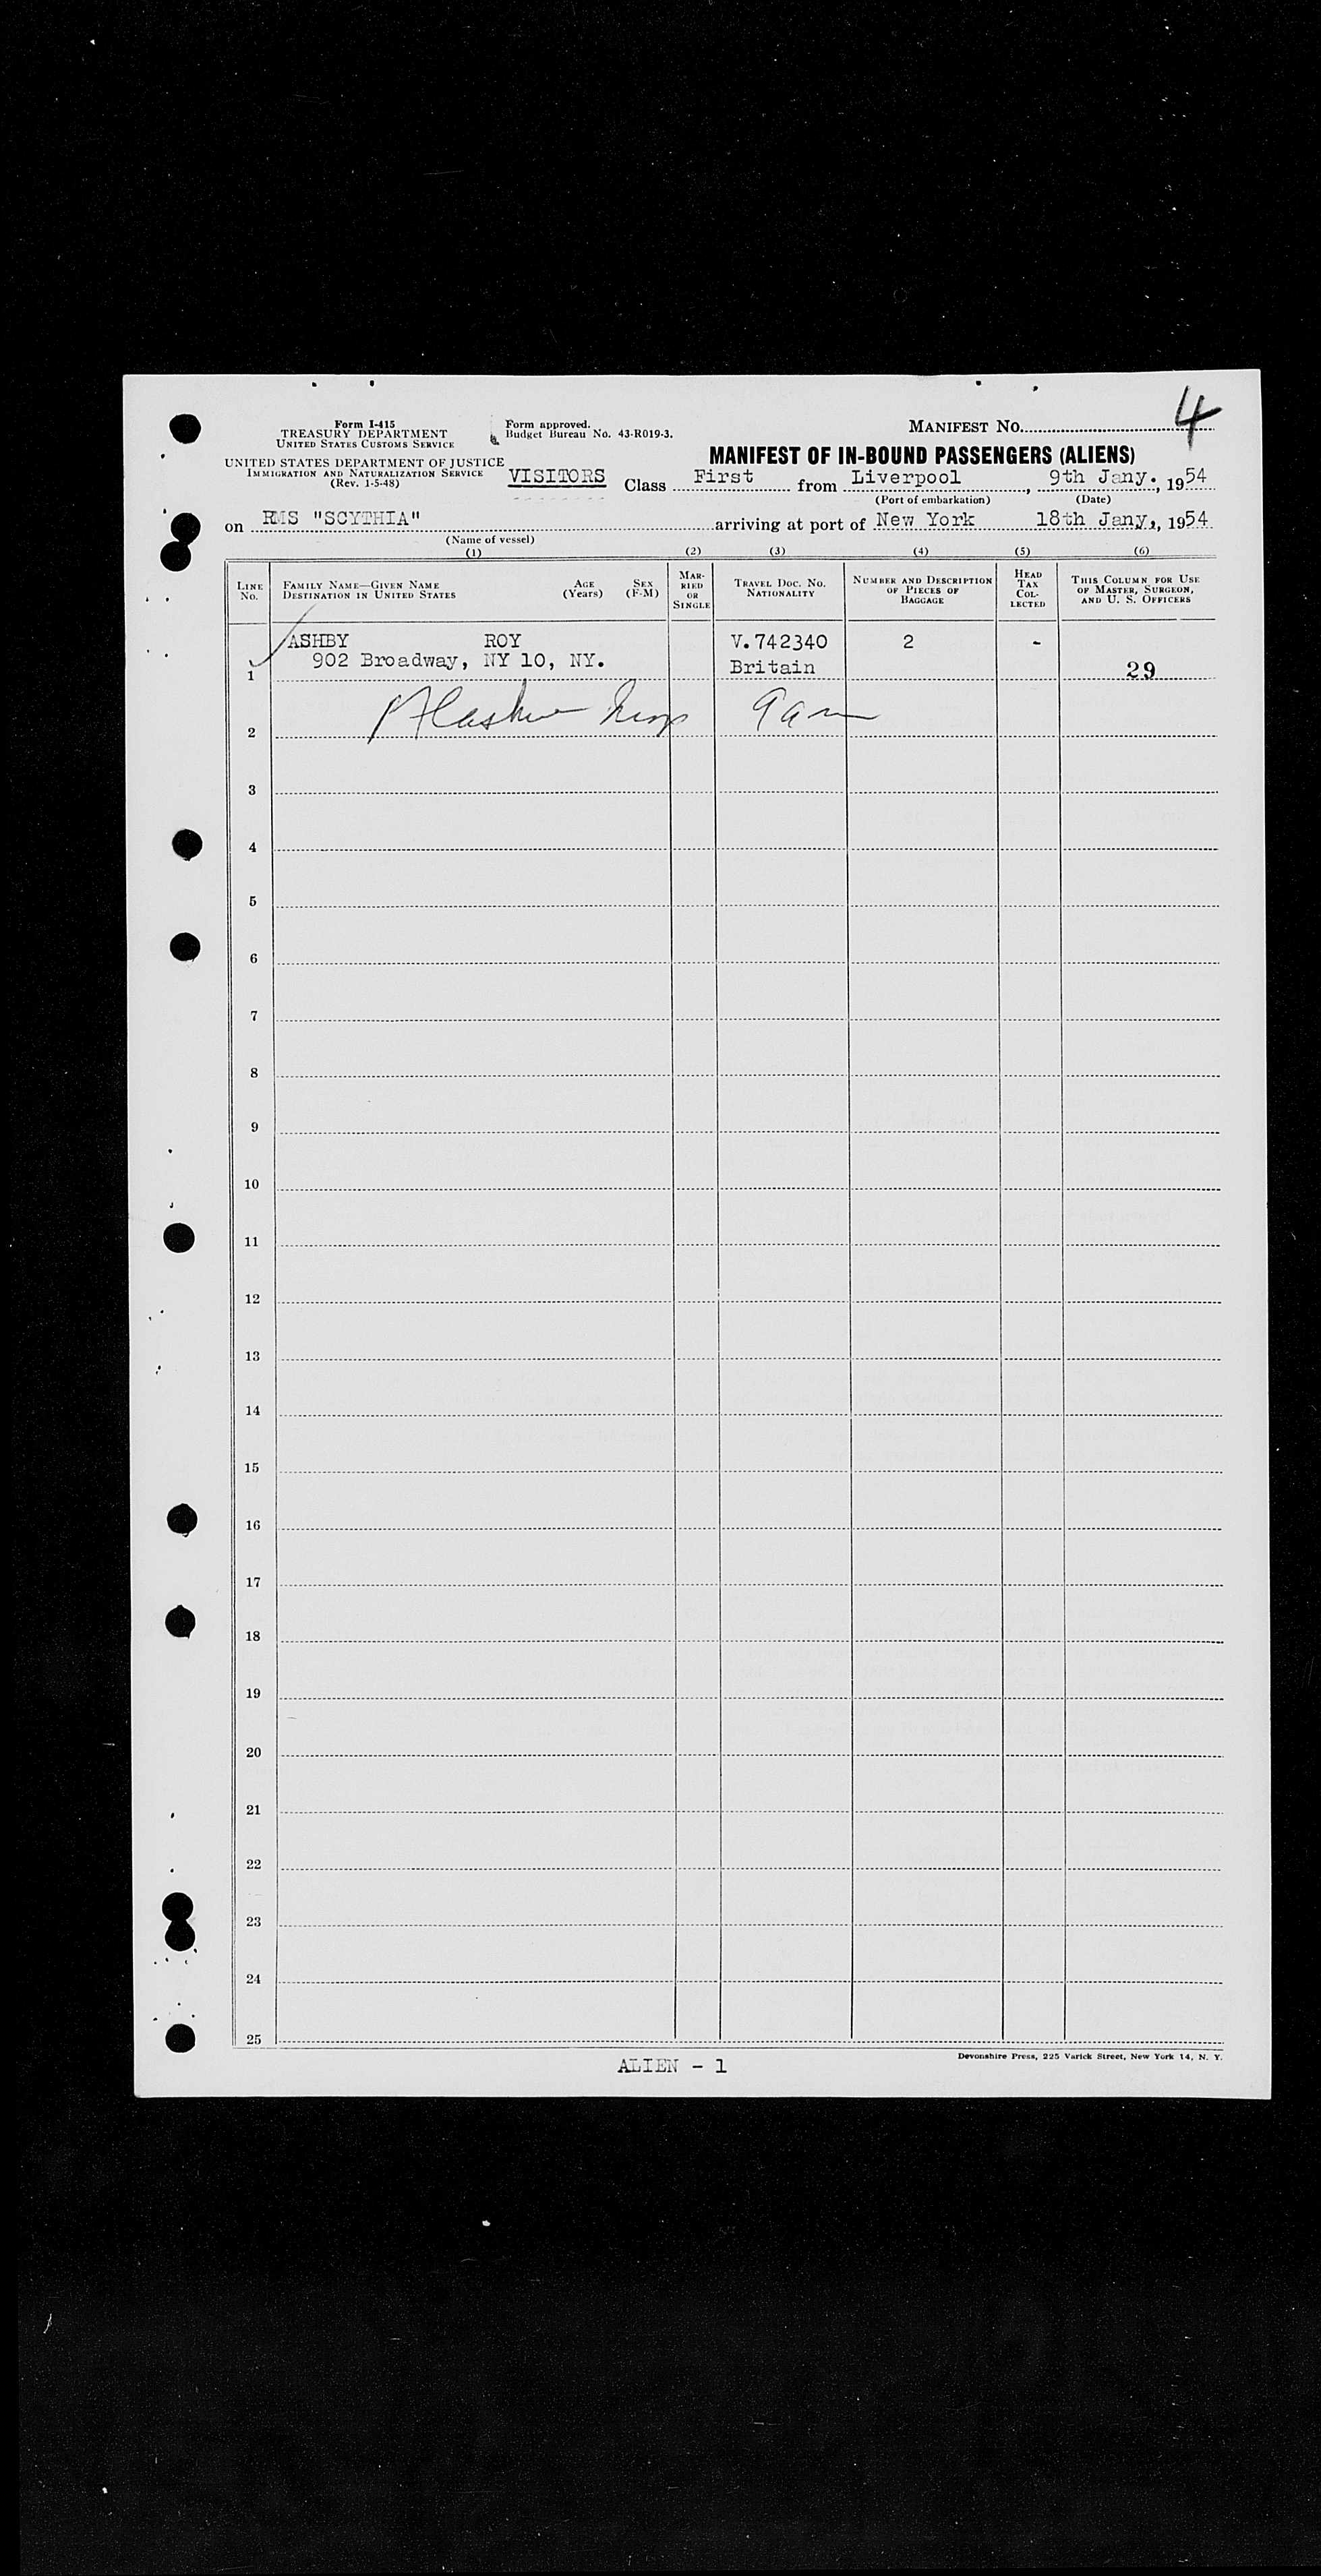 4
Form I-415
TREASURY DEPARTMENT
UNITED STATES CUSTOMS SERVICE
Form approved.
Budget Bureau No. 43-R019-3.
MANIFEST No.
UNITED STATES DEPARTMENT OF JUSTICE
IMMIGRATION AND NATURALIZATION SERVICE
(Rev. 1-5-48)
VISITORS
MANIFEST OF IN-BOUND PASSENGERS (ALIENS)
Class First from Liverpool, 9th Jany., 1954
(Port of embarkation) (Date)
on RMS "SCYTHIA" arriving at port of New York 18th Jany., 1954
(Name of vessel)
(1) (2) (3) (4) (5) (6)
LINE No.
FAMILY NAME—GIVEN NAME
DESTINATION IN UNITED STATES
AGE (Years)
SEX (F-M)
MARRIED OR SINGLE
TRAVEL DOC. No. NATIONALITY
NUMBER AND DESCRIPTION OF PIECES OF BAGGAGE
HEAD TAX COLLECTED
THIS COLUMN FOR USE OF MASTER, SURGEON, AND U. S. OFFICERS
ASHBY ROY V.742340 2 -
902 Broadway, NY 10, NY. Britain
1 29
2
3
4
5
6
7
8
9
10
11
12
13
14
15
16
17
18
19
20
21
22
23
24
25
Devonshire Press, 225 Varick Street, New York 14, N. Y.
ALIEN - 1